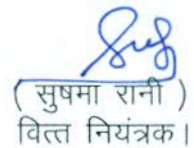 ( सुषमा रानी )
वित्त नियंत्रक।